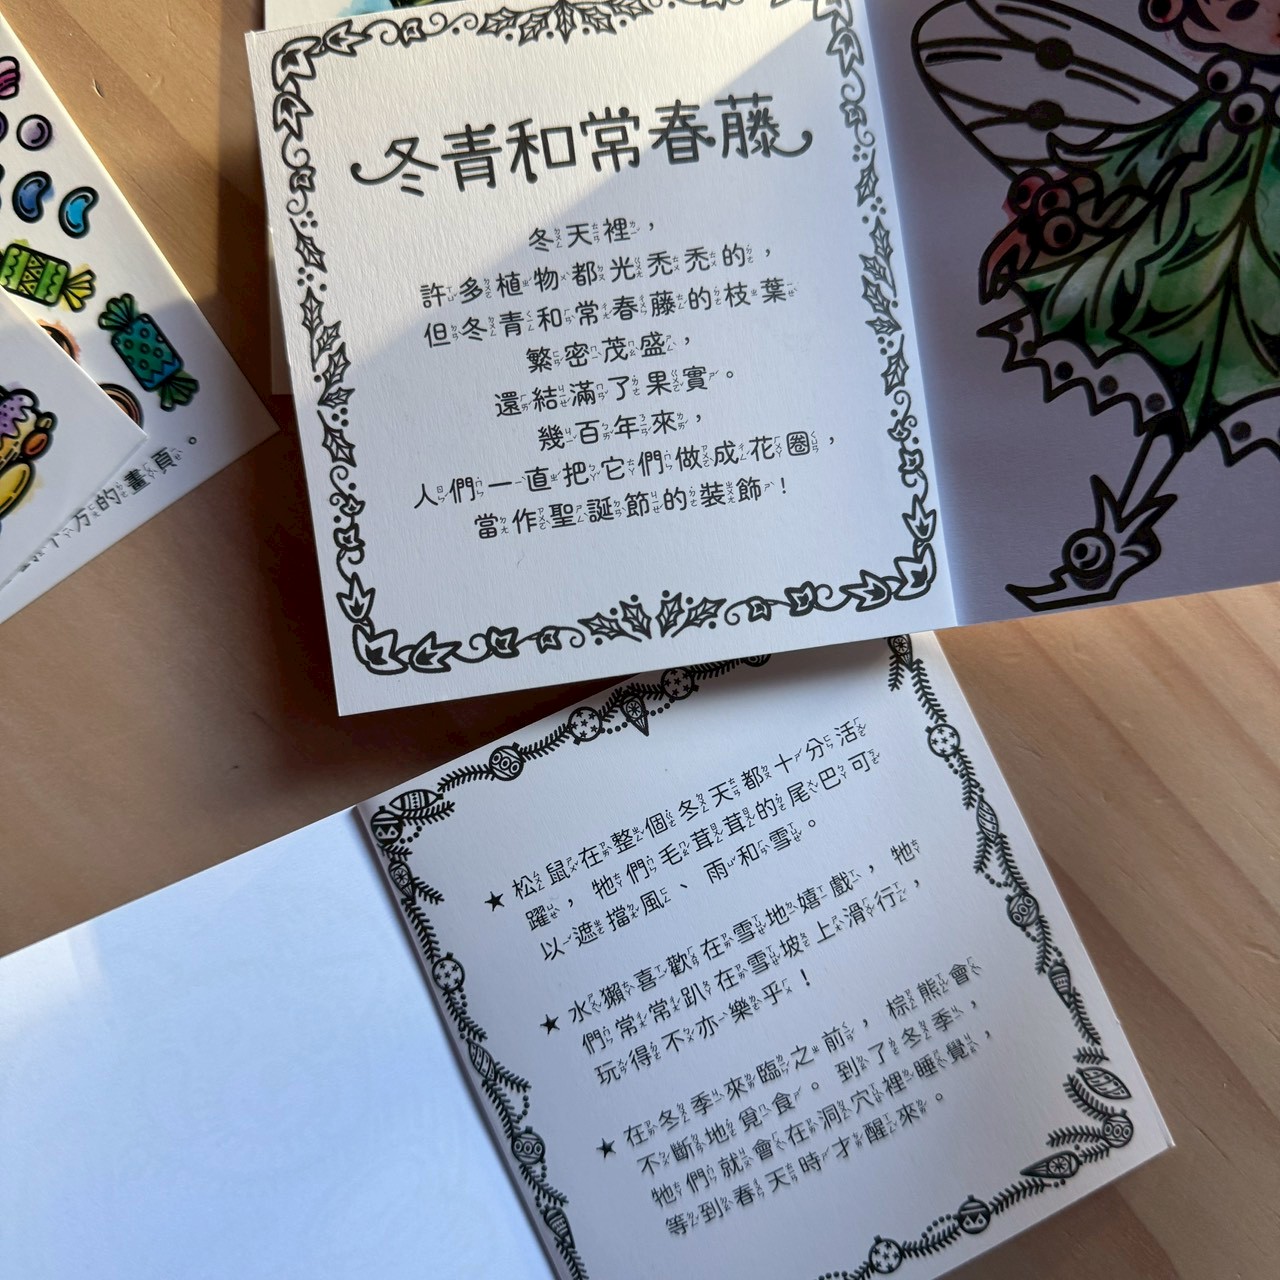 冬青和常春藤
冬天裡，
許多植物都光禿禿的，
但冬青和常春藤的枝葉
繁密茂盛，
還結滿了果實。
幾百年來，
人們一直把它們做成花圈，
當作聖誕節的裝飾！
方的畫頁。
★松鼠在整個冬天都十分活
躍，牠們毛茸茸的尾巴可
以遮擋風、雨和雪。
★水獺喜歡在雪地嬉戲，牠
們常常趴在雪坡上滑行，
玩得不亦樂乎！
★在冬季來臨之前，棕熊會
不斷地覓食。到了冬季，
牠們就會在洞穴裡睡覺，
等到春天時才醒來。